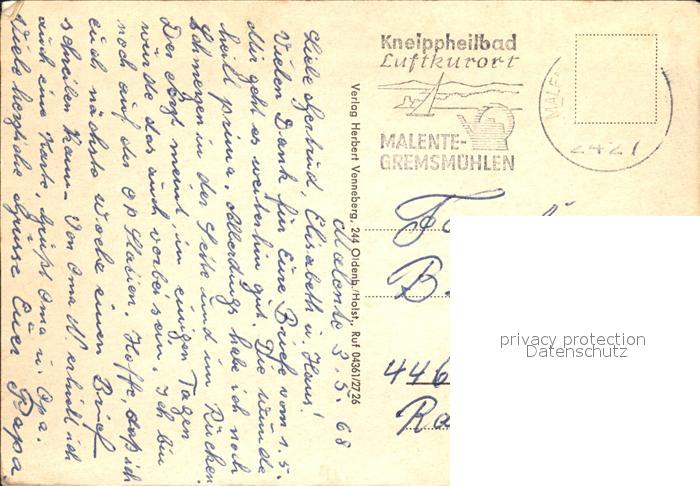 Malente 3.5.68
Liebe Gertrud, Elisabeth u. Hans!
Vielen Dank für Eure Brief vom 1.5.
Mir geht es weiterhin gut. Die Wunde
heilt prima. Allerdings habe ich noch
Schmerzen in der Seite und im Rücken.
Der Arzt meint, in einigen Tagen
würde das auch vorbei sein. Ich bin
noch auf der OP Station. Hoffe, daß ich
euch nächste Woche einen Brief
schreiben kann. Von Oma N. erhielt ich
auch eine Karte. Grüßt Oma u. Opa.
Viele herzliche Grüsse Euer Papa
Verlag Herbert Venneberg, 244 Oldenb./Holst., Ruf 04361/2726
Kneippheilbad
Luftkurort
MALENTE-
GREMSMÜHLEN
MALE
2427
Fa
B.
446
Ra
privacy protection
Datenschutz